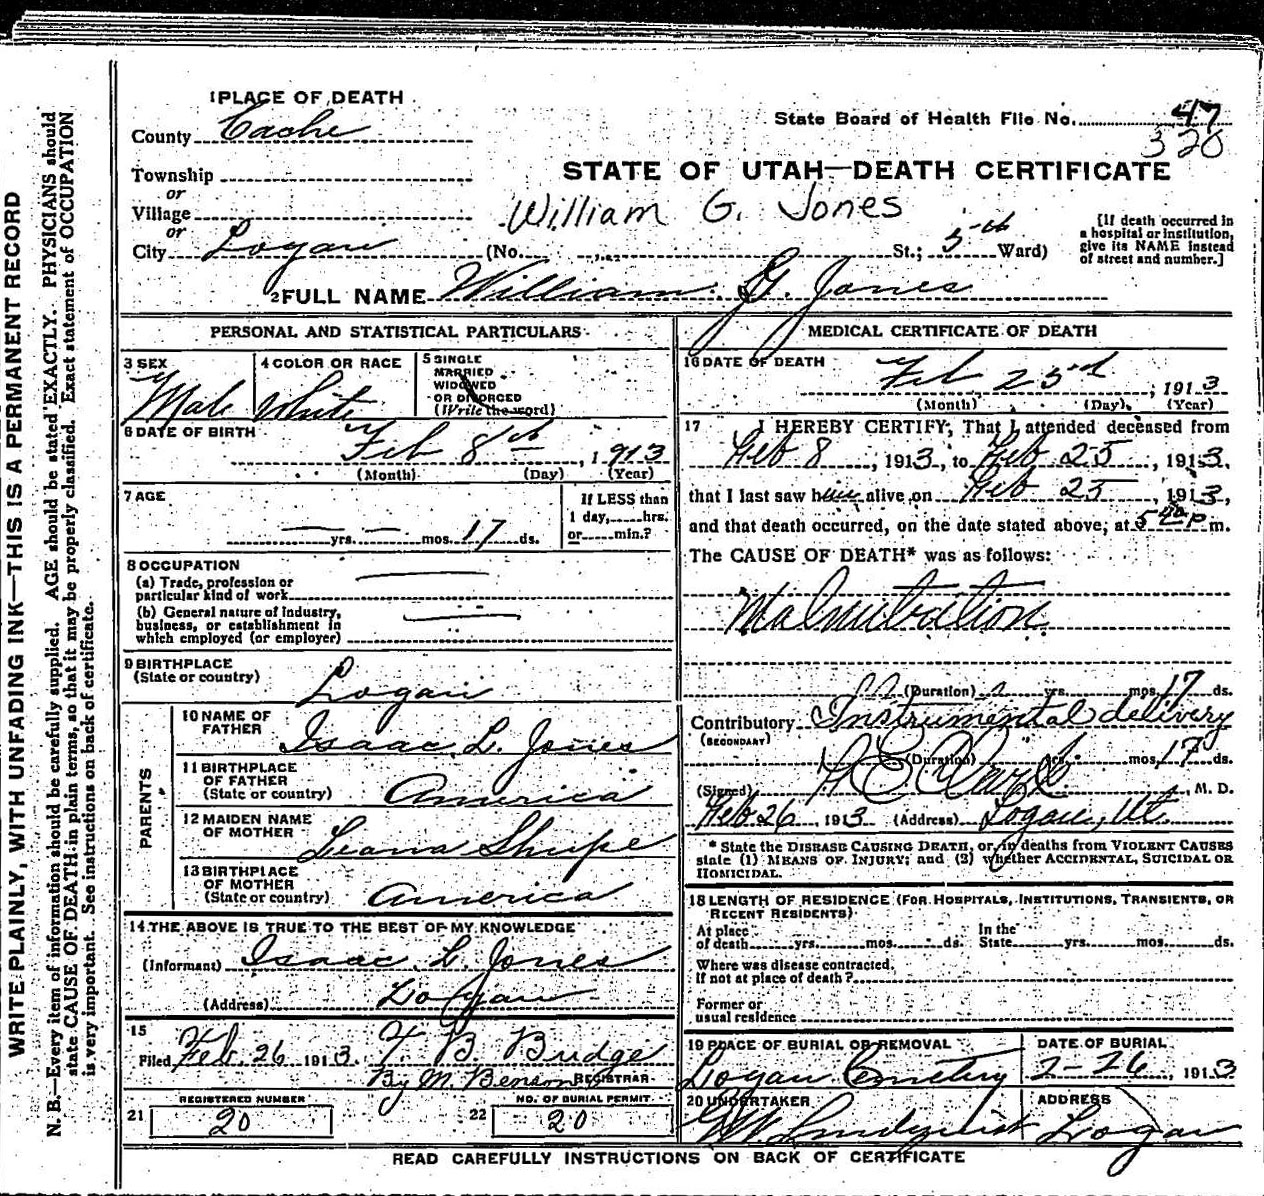 WRITE PLAINLY, WITH UNFADING INK—THIS IS A PERMANENT RECORD
N. B.—Every item of information should be carefully supplied. AGE should be stated EXACTLY. PHYSICIANS should
state CAUSE OF DEATH in plain terms, so that it may be properly classified. Exact statement of OCCUPATION
is very important. See instructions on back of certificate.
1 PLACE OF DEATH
County Cache
Township
or
Village
or
City Logan
State Board of Health File No. 47
320
STATE OF UTAH—DEATH CERTIFICATE
William G. Jones
(No. St.; 5th Ward)
[If death occurred in
a hospital or institution,
give its NAME instead
of street and number.]
2 FULL NAME William G. Jones
PERSONAL AND STATISTICAL PARTICULARS
3 SEX
Male
4 COLOR OR RACE
White
5 SINGLE
MARRIED
WIDOWED
OR DIVORCED
(Write the word)
6 DATE OF BIRTH
Feb 8th, 1913
(Month) (Day) (Year)
7 AGE
— yrs. — mos. 17 ds.
If LESS than
1 day, hrs.
or min.?
8 OCCUPATION
(a) Trade, profession or
particular kind of work
(b) General nature of industry,
business, or establishment in
which employed (or employer)
9 BIRTHPLACE
(State or country)
Logan
PARENTS
10 NAME OF
FATHER
Isaac L. Jones
11 BIRTHPLACE
OF FATHER
(State or country)
America
12 MAIDEN NAME
OF MOTHER
Leana Shupe
13 BIRTHPLACE
OF MOTHER
(State or country)
America
14 THE ABOVE IS TRUE TO THE BEST OF MY KNOWLEDGE
(Informant) Isaac L. Jones
(Address) Logan
15
Filed Feb. 26 1913. T. B. Budge
By M. Benson REGISTRAR
21 REGISTERED NUMBER
20
22 NO. OF BURIAL PERMIT
20
MEDICAL CERTIFICATE OF DEATH
16 DATE OF DEATH
Feb 25th, 1913
(Month) (Day) (Year)
17 I HEREBY CERTIFY, That I attended deceased from
Feb 8, 1913, to Feb 25, 1913.
that I last saw him alive on Feb 25, 1913,
and that death occurred, on the date stated above, at 5 P m.
The CAUSE OF DEATH* was as follows:
Malnutrition
(Duration) yrs. mos. 17 ds.
Contributory Instrumental delivery
(SECONDARY)
(Duration) yrs. mos. 17 ds.
(Signed) M. D.
Feb 26, 1913 (Address) Logan, Ut.
* State the DISEASE CAUSING DEATH, or, in deaths from VIOLENT CAUSES
state (1) MEANS OF INJURY; and (2) whether ACCIDENTAL, SUICIDAL OR
HOMICIDAL.
18 LENGTH OF RESIDENCE (FOR HOSPITALS, INSTITUTIONS, TRANSIENTS, OR
RECENT RESIDENTS)
At place In the
of death yrs. mos. ds. State yrs. mos. ds.
Where was disease contracted,
If not at place of death?
Former or
usual residence
19 PLACE OF BURIAL OR REMOVAL
Logan Cemetery
DATE OF BURIAL
2-26, 1913
20 UNDERTAKER
Lindquist
ADDRESS
Logan
READ CAREFULLY INSTRUCTIONS ON BACK OF CERTIFICATE